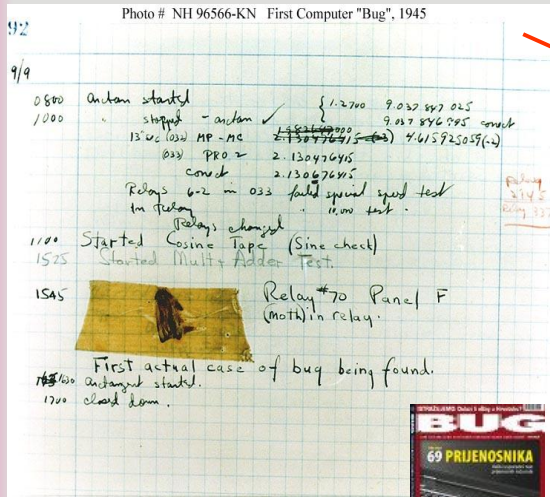 Photo # NH 96566-KN First Computer "Bug", 1945
92
9/9
0800 antan started
1000 " stopped - antan ✓ { 1.2700 9.037 847 025
9.037 846 995 conect
13"uc (032) MP - MC 2.130476415 4.615925059(-2)
(033) PRO 2 2.130476415
conect 2.130676415
Relays 6-2 in 033 failed special speed test
in relay " 10,000 test.
Relays changed
1100 Started Cosine Tape (Sine check)
1525 Started Mult + Adder Test.
1545 Relay #70 Panel F
(moth) in relay.
First actual case of bug being found.
1630 antangent started.
1700 closed down.
BUG
69 PRIJENOSNIKA